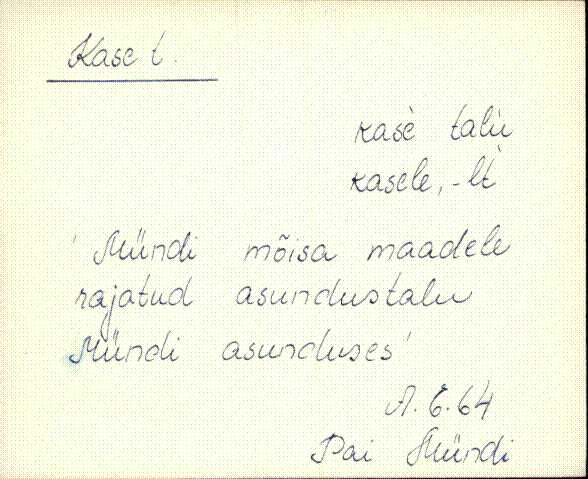 Kase t.
kasè talu
kasele, -lt
'Mündi mõisa maadele
rajatud asundustalu
Mündi asunduses'
A. E. 64
Pai Mündi